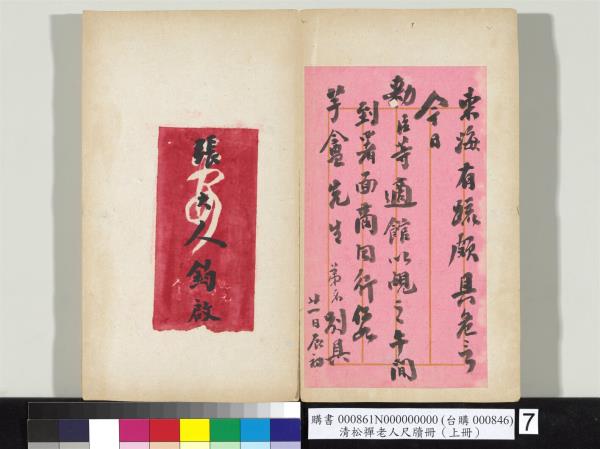 東海有蹊頗具危言
今日
勳臣等適館以覘之午間
到署面商同行爲
芋盦先生 弟名別具
廿一日辰初
張大人鈞啟
購書 000861N000000000 (台購 000846)
清松禪老人尺牘冊（上冊）
7